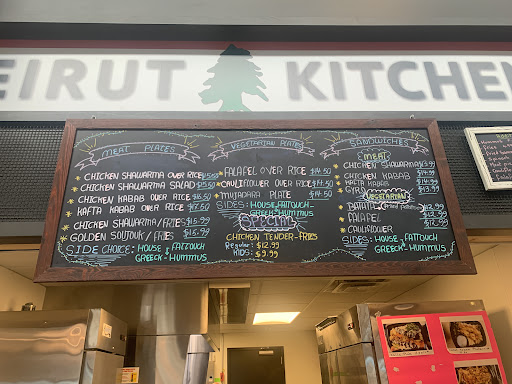 EIRUT KITCHEN
MEAT PLATES
CHICKEN SHAWARMA OVER RICE $15.50
CHICKEN SHAWARMA SALAD $15.50
CHICKEN KABAB OVER RICE $16.50
KAFTA KABAB OVER RICE $17.50
CHICKEN SHAWARMA/FRIES $15.99
GOLDEN SOUJOUK/FRIES $15.99
SIDE CHOICE: HOUSE, FATTOUCH
GREECK-HUMMUS
VEGETARIAN PLATES
FALAFEL OVER RICE $14.50
CAULIFLOWER OVER RICE $14.50
MUJADARA PLATE $14.50
SIDES: HOUSE, FATTOUCH
GREECK-HUMMUS
SPECIALS
CHICKEN TENDER-FRIES
Regular: $12.99
KIDS: $9.99
SANDWICHES
MEAT
CHICKEN SHAWARMA $13.99
CHICKEN KABAB
KAFTA KABAB
GYRO $13.99
VEGETARIAN
BATATA
FALAFEL $12.99
CAULIFLOWER
SIDES: HOUSE, FATTOUCH
GREECK-HUMMUS